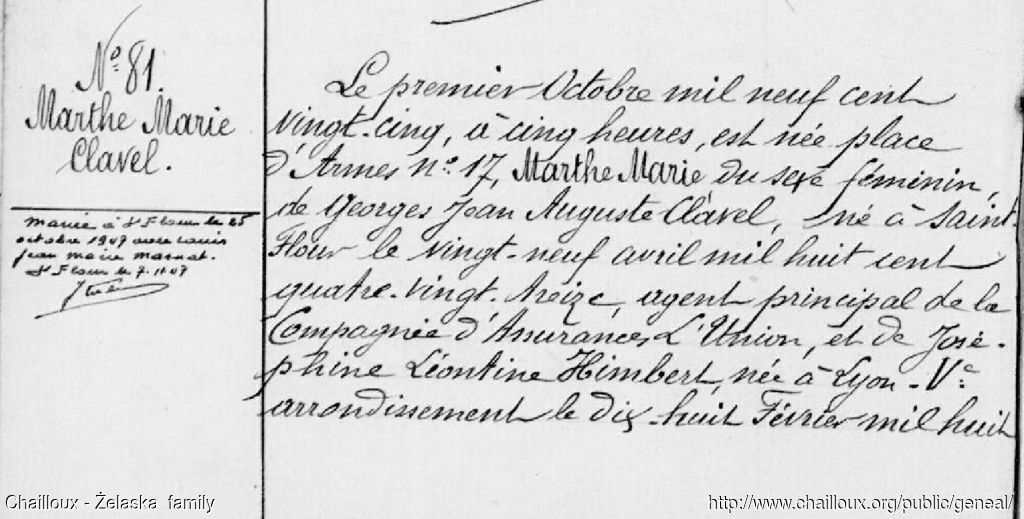 N° 81.
Marthe Marie
Clavel.
Mariée à St Flour le 25
octobre 1947 avec Louis
Jean Marie
St Flour le 7.11.47
Le premier Octobre mil neuf cent
vingt-cinq, à cinq heures, est née place
d'Armes n° 17, Marthe Marie du sexe féminin,
de Georges Jean Auguste Clavel, né à Saint-
Flour le vingt-neuf avril mil huit cent
quatre-vingt-treize, agent principal de la
Compagnie d'Assurances L'Union, et de José-
phine Léontine Himbert, née à Lyon - Ve
arrondissement le dix-huit Février mil huit
Chailloux - Želaska family
http://www.chailloux.org/public/geneal/